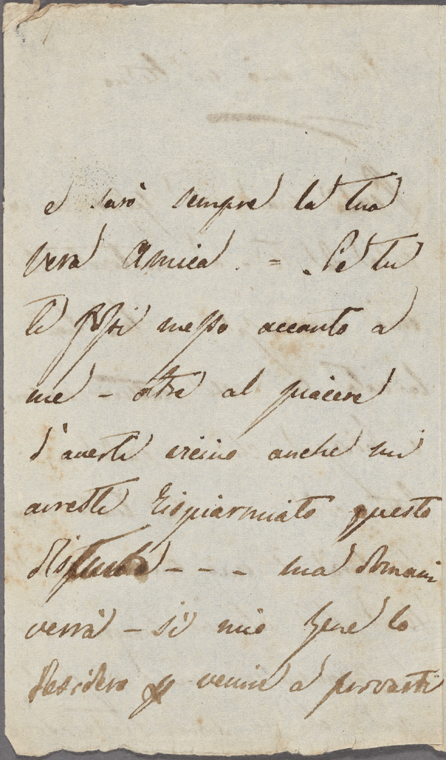 e sarò sempre la tua
vera Amica. = Se tu
ti fossi messo accanto a
me – oltre al piacere
d'averti vicino anche mi
avresti risparmiato questo
disturbo – – – ma domani
verrà – sì mio bene lo
desidero venir a provarti